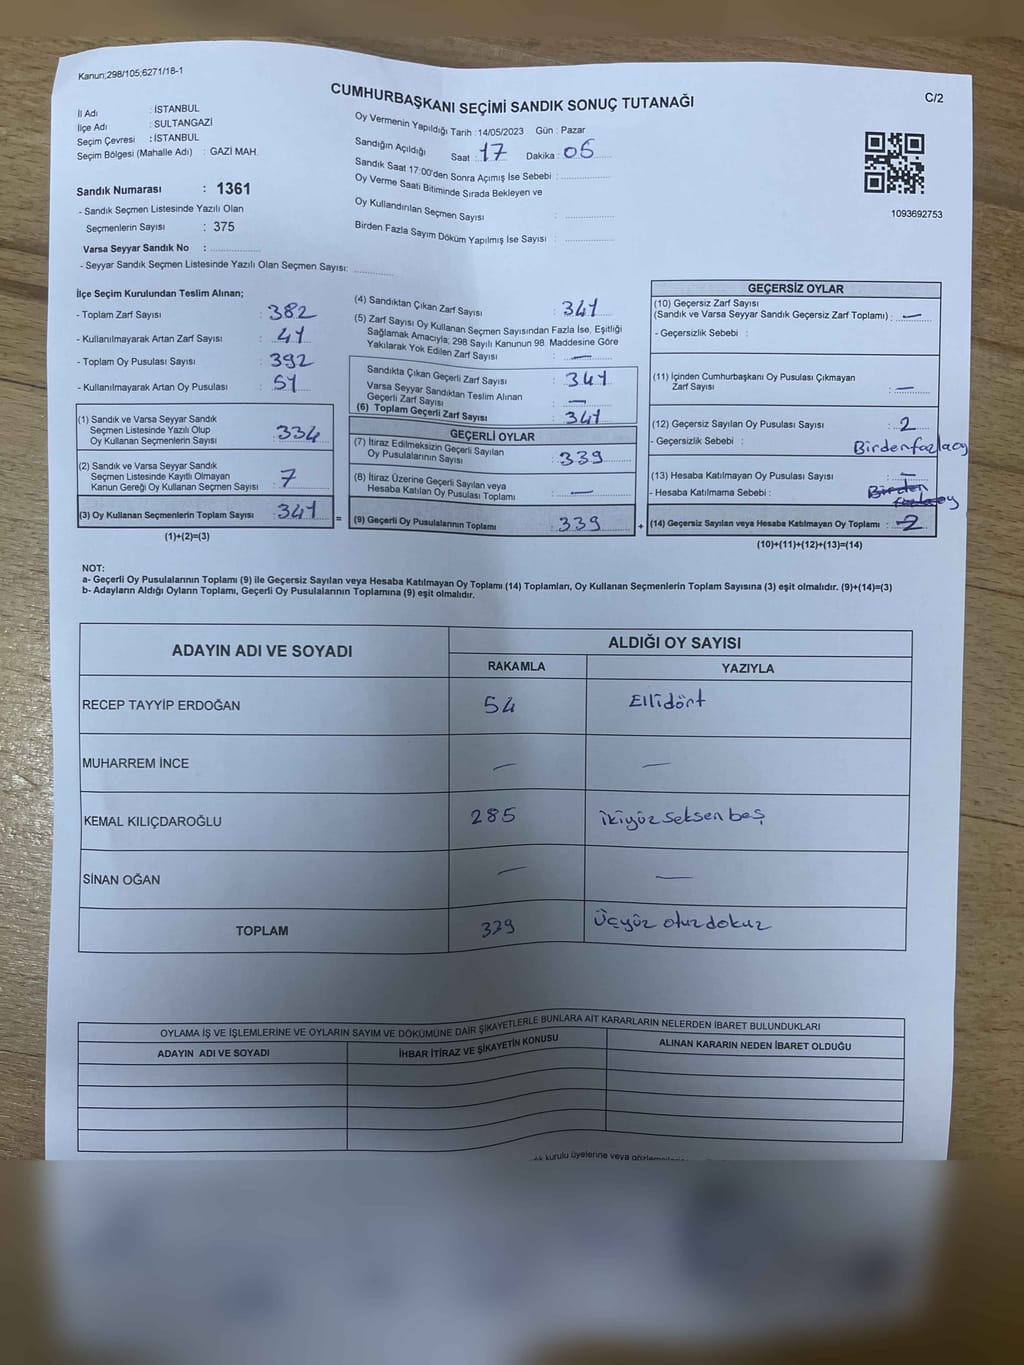 Kanun;298/105;6271/18-1
CUMHURBAŞKANI SEÇİMİ SANDIK SONUÇ TUTANAĞI
C/2
İl Adı : İSTANBUL
İlçe Adı : SULTANGAZİ
Seçim Çevresi : İSTANBUL
Seçim Bölgesi (Mahalle Adı) : GAZİ MAH.
Sandık Numarası : 1361
- Sandık Seçmen Listesinde Yazılı Olan
Seçmenlerin Sayısı : 375
Varsa Seyyar Sandık No : ..............
- Seyyar Sandık Seçmen Listesinde Yazılı Olan Seçmen Sayısı: ..............
Oy Vermenin Yapıldığı Tarih : 14/05/2023 Gün : Pazar
Sandığın Açıldığı Saat : 17 Dakika : 05
Sandık Saat 17:00'den Sonra Açımış İse Sebebi : ..............
Oy Verme Saati Bitiminde Sırada Bekleyen ve
Oy Kullandırılan Seçmen Sayısı : ..............
Birden Fazla Sayım Döküm Yapılmış İse Sayısı : ..............
1093692753
İlçe Seçim Kurulundan Teslim Alınan;
- Toplam Zarf Sayısı : 382
- Kullanılmayarak Artan Zarf Sayısı : 41
- Toplam Oy Pusulası Sayısı : 392
- Kullanılmayarak Artan Oy Pusulası : 51
(1) Sandık ve Varsa Seyyar Sandık
Seçmen Listesinde Yazılı Olup
Oy Kullanan Seçmenlerin Sayısı : 334
(2) Sandık ve Varsa Seyyar Sandık
Seçmen Listesinde Kayıtlı Olmayan
Kanun Gereği Oy Kullanan Seçmen Sayısı : 7
(3) Oy Kullanan Seçmenlerin Toplam Sayısı : 341
(1)+(2)=(3)
=
(4) Sandıktan Çıkan Zarf Sayısı : 341
(5) Zarf Sayısı Oy Kullanan Seçmen Sayısından Fazla İse, Eşitliği
Sağlamak Amacıyla; 298 Sayılı Kanunun 98. Maddesine Göre
Yakılarak Yok Edilen Zarf Sayısı : —
Sandıkta Çıkan Geçerli Zarf Sayısı : 341
Varsa Seyyar Sandıktan Teslim Alınan
Geçerli Zarf Sayısı : —
(6) Toplam Geçerli Zarf Sayısı : 341
GEÇERLİ OYLAR
(7) İtiraz Edilmeksizin Geçerli Sayılan
Oy Pusulalarının Sayısı : 339
(8) İtiraz Üzerine Geçerli Sayılan veya
Hesaba Katılan Oy Pusulası Toplamı : —
(9) Geçerli Oy Pusulalarının Toplamı : 339
+
GEÇERSİZ OYLAR
(10) Geçersiz Zarf Sayısı
(Sandık ve Varsa Seyyar Sandık Geçersiz Zarf Toplamı) : —
- Geçersizlik Sebebi :
(11) İçinden Cumhurbaşkanı Oy Pusulası Çıkmayan
Zarf Sayısı : —
(12) Geçersiz Sayılan Oy Pusulası Sayısı : 2
- Geçersizlik Sebebi : Birden fazla oy
(13) Hesaba Katılmayan Oy Pusulası Sayısı : —
- Hesaba Katılmama Sebebi : Birden
fazla oy
(14) Geçersiz Sayılan veya Hesaba Katılmayan Oy Toplamı : 2
(10)+(11)+(12)+(13)=(14)
NOT:
a- Geçerli Oy Pusulalarının Toplamı (9) ile Geçersiz Sayılan veya Hesaba Katılmayan Oy Toplamı (14) Toplamları, Oy Kullanan Seçmenlerin Toplam Sayısına (3) eşit olmalıdır. (9)+(14)=(3)
b- Adayların Aldığı Oyların Toplamı, Geçerli Oy Pusulalarının Toplamına (9) eşit olmalıdır.
ADAYIN ADI VE SOYADI
ALDIĞI OY SAYISI
RAKAMLA YAZIYLA
RECEP TAYYİP ERDOĞAN 54 Ellidört
MUHARREM İNCE — —
KEMAL KILIÇDAROĞLU 285 ikiyüz seksen beş
SİNAN OĞAN — —
TOPLAM 339 Üçyüz otuz dokuz
OYLAMA İŞ VE İŞLEMLERİNE VE OYLARIN SAYIM VE DÖKÜMÜNE DAİR ŞİKAYETLERLE BUNLARA AİT KARARLARIN NELERDEN İBARET BULUNDUKLARI
ADAYIN ADI VE SOYADI İHBAR İTİRAZ VE ŞİKAYETİN KONUSU ALINAN KARARIN NEDEN İBARET OLDUĞU
kurulu üyelerine veya